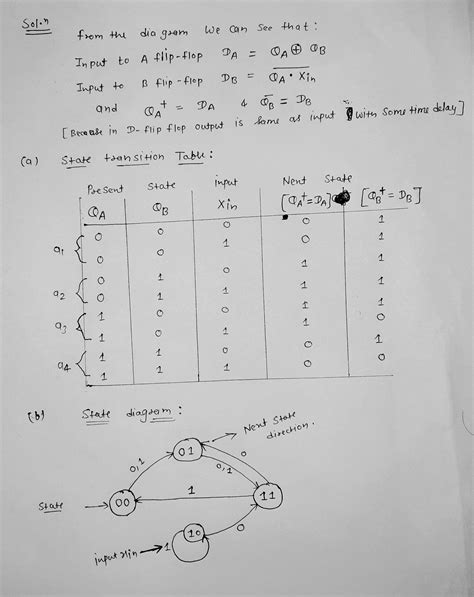 Sol.n
from the diagram we can see that :
Input to A flip-flop DA = QA ⊕ QB
Input to B flip-flop DB = \overline{QA · Xin}
and QA+ = DA & QB+ = DB
[Because in D-flip flop output is same as input with some time delay]
(a) State transition Table :
Present State input Next State
QA QB Xin [QA+=DA] [QB+=DB]
a1 0 0 0 0 1
0 0 1 0 1
a2 0 1 0 1 1
0 1 1 1 1
a3 1 0 0 1 1
1 0 1 1 0
a4 1 1 0 0 1
1 1 1 0 0
(b) State diagram :
Next State
direction.
01
0,1
0
0,1
1
State
00
11
10
0
input xin
1